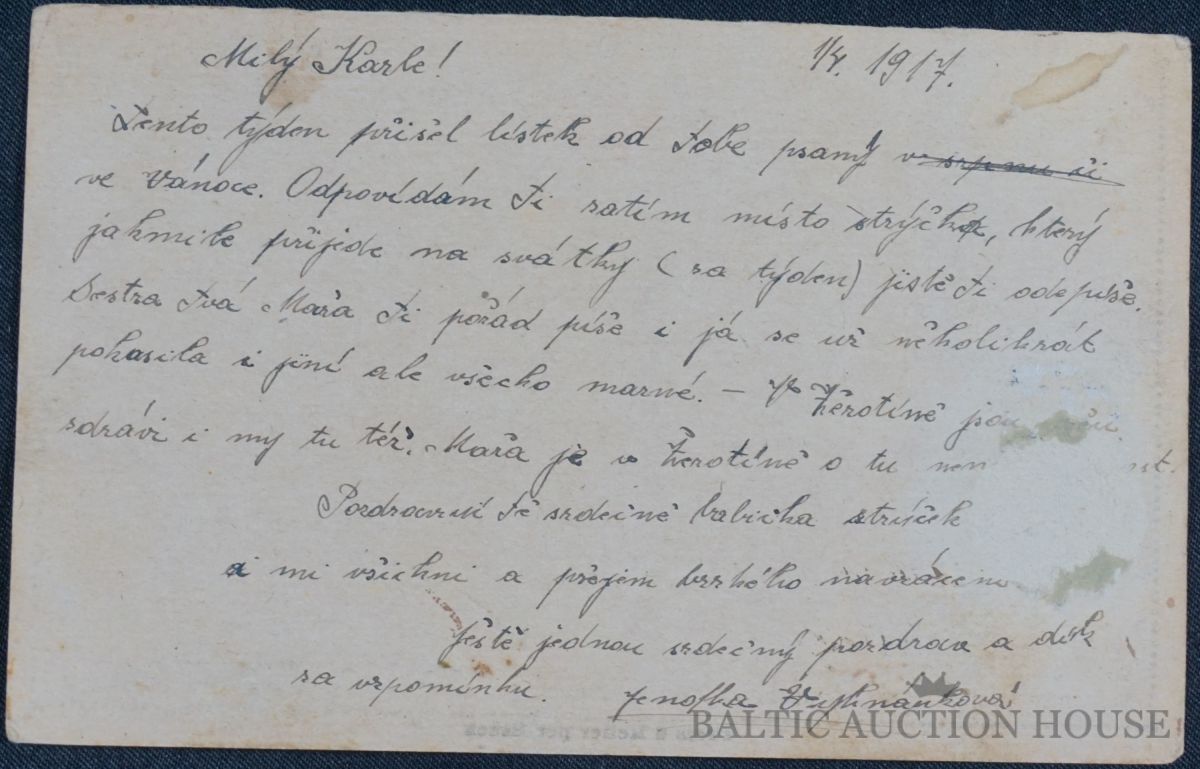 Milý Karle! 1/4. 1917.
Tento týden přišel lístek od Tebe psaný v srpnu či
ve Vánoce. Odpovídám Ti zatím místo strýčka, který
jakmile přijede na svátky (za týden) jistě Ti odepíše.
Sestra Tvá Mařa Ti pořád píše i já se už několikrát
pokusila i jiní ale všecko marné. – V Žerotíně jsou
zdrávi i my tu též. Mařa je v Žerotíně o tu
Pozdravují Tě srdečně babička strýček
a mi všichni a přejem brzkého navrácení
Ještě jednou srdečný pozdrav a dík
za vzpomínku. Jenofka
BALTIC AUCTION HOUSE